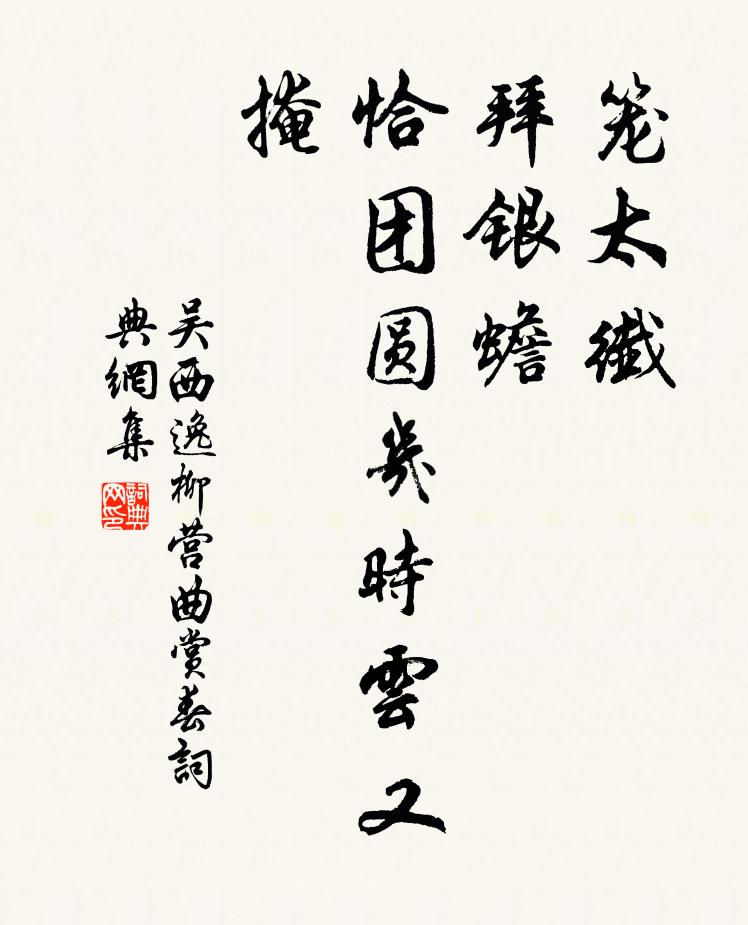 笼太纖
拜银蟾
恰团圆幾時雲又
掩
吴西逸柳营曲赏春詞
典網集
詞典
网印